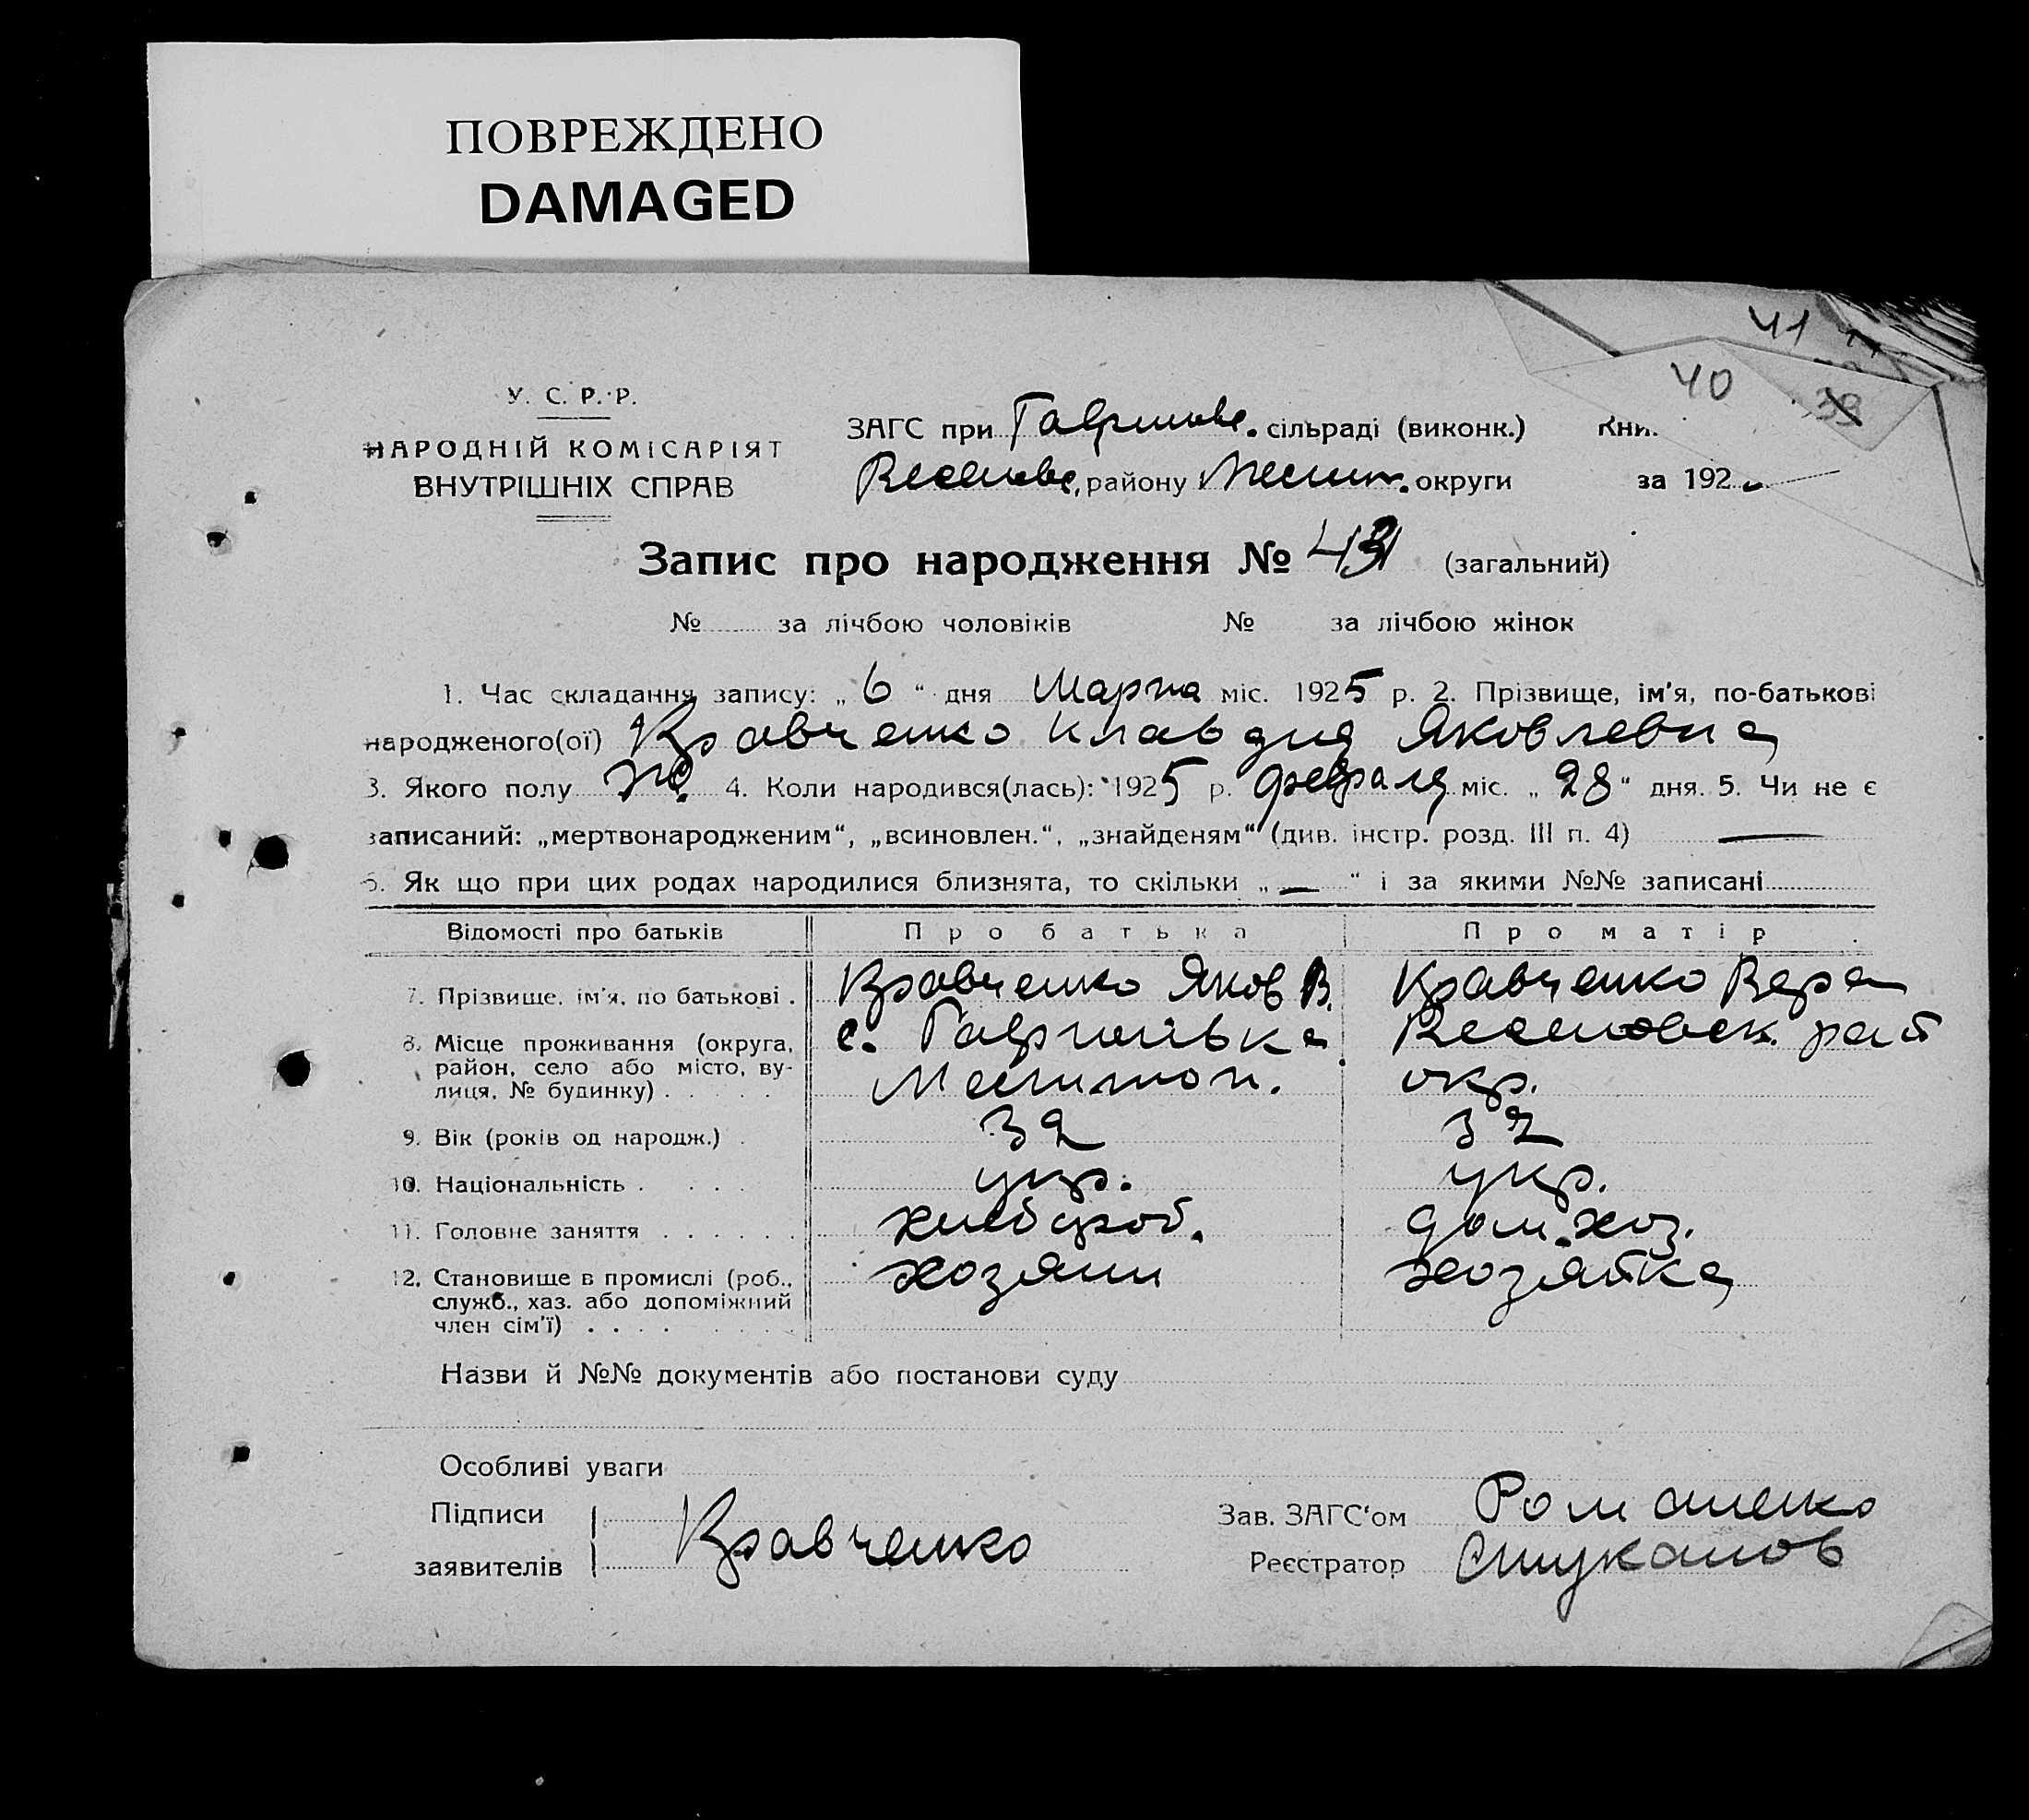 ПОВРЕЖДЕНО
DAMAGED
41
40
39
У. С. Р. Р.
НАРОДНІЙ КОМІСАРІЯТ
ВНУТРІШНІХ СПРАВ
ЗАГС при сільраді (виконк.) Кни.
району округи за 192
Запис про народження № (загальний)
№ за лічбою чоловіків № за лічбою жінок
1. Час складання запису: „ 6 “ дня Марта міс. 1925 р. 2. Прізвище, ім'я, по-батькові
народженого(ої) Кравченко Клавдия Яковлевна
3. Якого полу Ж. 4. Коли народився(лась): 1925 р. февраля міс. „ 28 “ дня. 5. Чи не є
записаний: „мертвонародженим“, „всиновлен.“, „знайденям“ (див. інстр. розд. III п. 4) —
6. Як що при цих родах народилися близнята, то скільки „ — “ і за якими №№ записані
Відомості про батьків Про батька Про матір
7. Прізвище, ім'я, по батькові . Кравченко Яков В. Кравченко Вера
8. Місце проживання (округа, район, село або місто, вулиця, № будинку) с. Гаврилівка Веселовск. рай
Мелитоп. окр.
9. Вік (років од народж.) . 32 32
10. Національність . укр. укр.
11. Головне заняття хлебороб. дом. хоз.
12. Становище в промислі (роб., хозяин хозяйка
служб., хаз. або допоміжний
член сім'ї)
Назви й №№ документів або постанови суду
Особливі уваги
Підписи
заявителів Кравченко
Зав. ЗАГС'ом Романенко
Реєстратор Стуканов